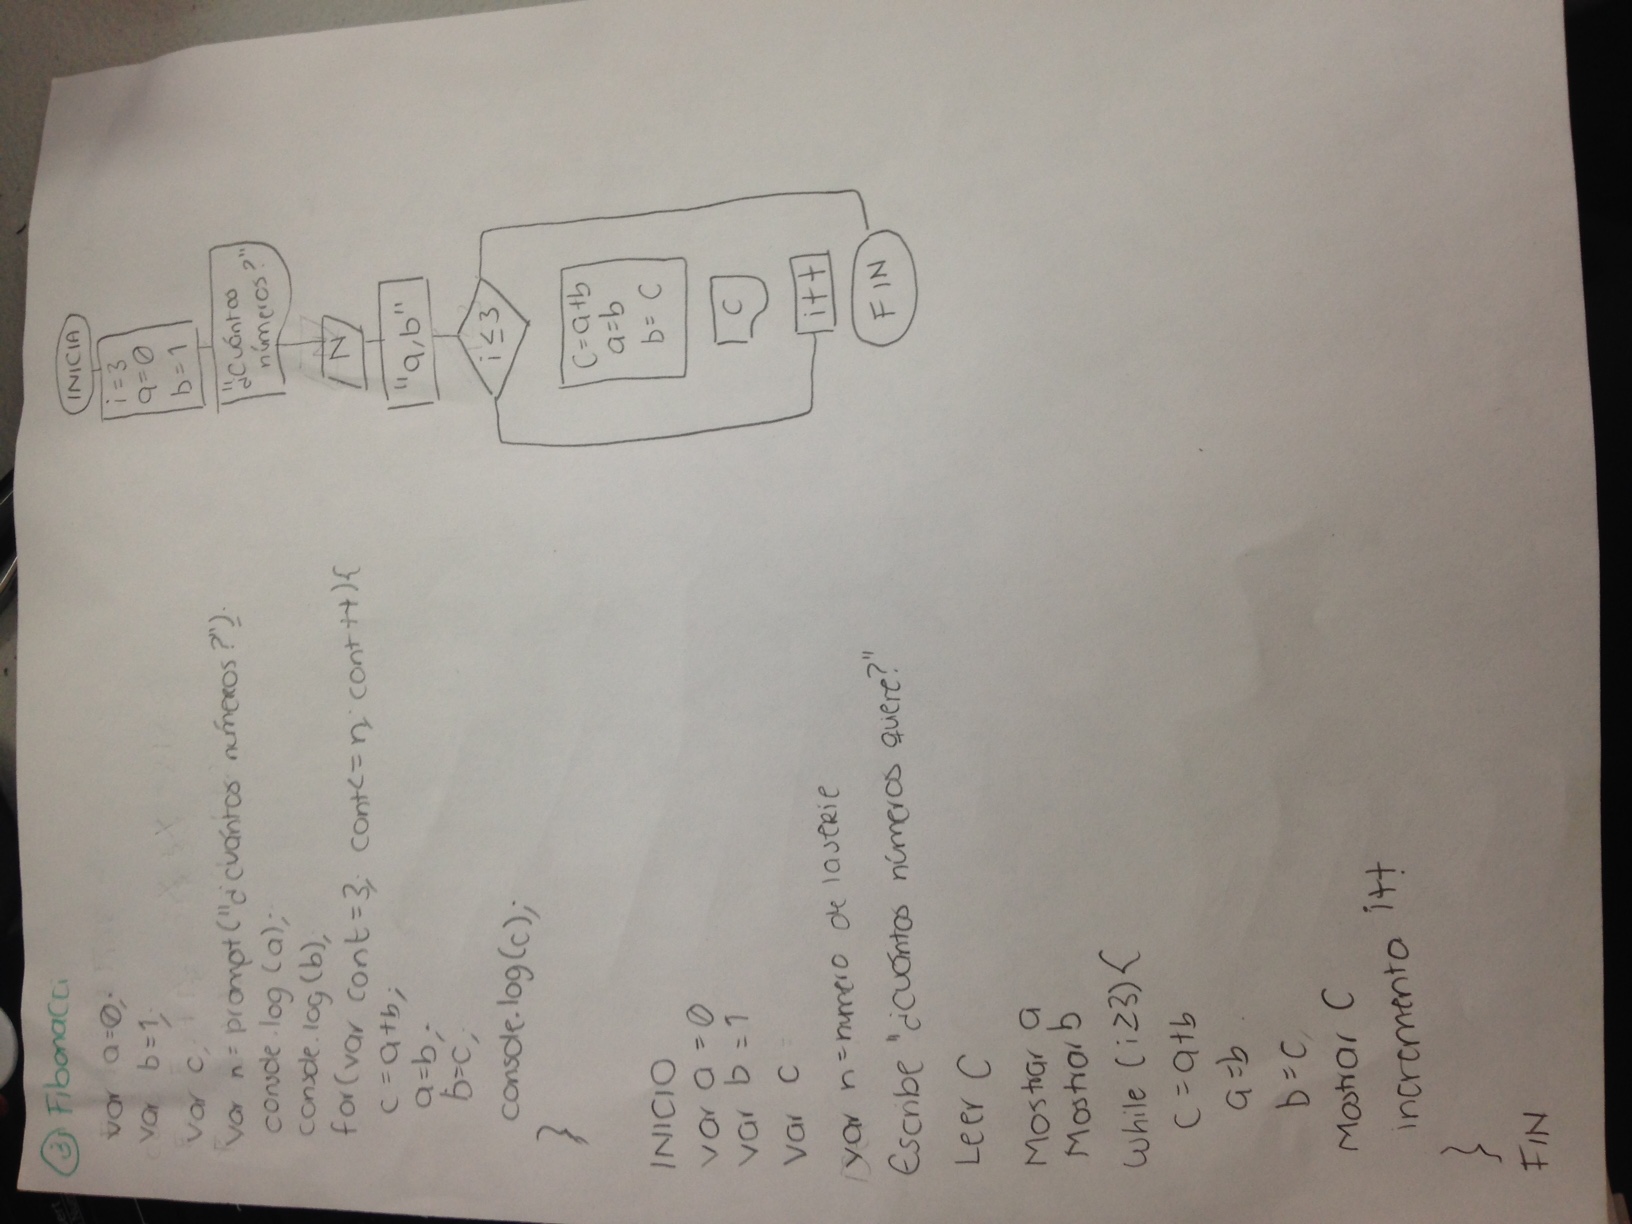 3) Fibonacci
var a=0;
var b=1;
var c;
var n=prompt("¿cuántos números?");
console.log(a);
console.log(b);
for(var cont=3; cont<=n; cont++){
c=a+b;
a=b;
b=c;
console.log(c);
}
INICIO
var a=0
var b=1
var c
var n=numero de la serie
Escribe "¿cuántos números quere?"
Leer C
Mostrar a
Mostrar b
While (i≥3){
c=a+b
a=b
b=c
Mostrar C
incrementa i++
}
FIN
INICIA
i=3
a=0
b=1
"¿Cuántos
números?"
N
"a,b"
i≤3
C=a+b
a=b
b=C
C
i++
FIN